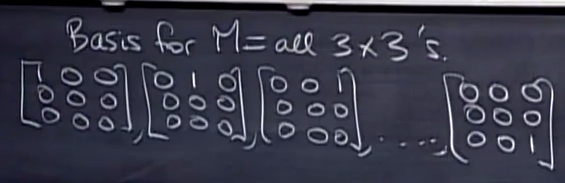 Basis for M = all 3x3's.
1 0 0   0 1 0   0 0 1         0 0 0
0 0 0   0 0 0   0 0 0         0 0 0
0 0 0 , 0 0 0 , 0 0 0 , ...., 0 0 1